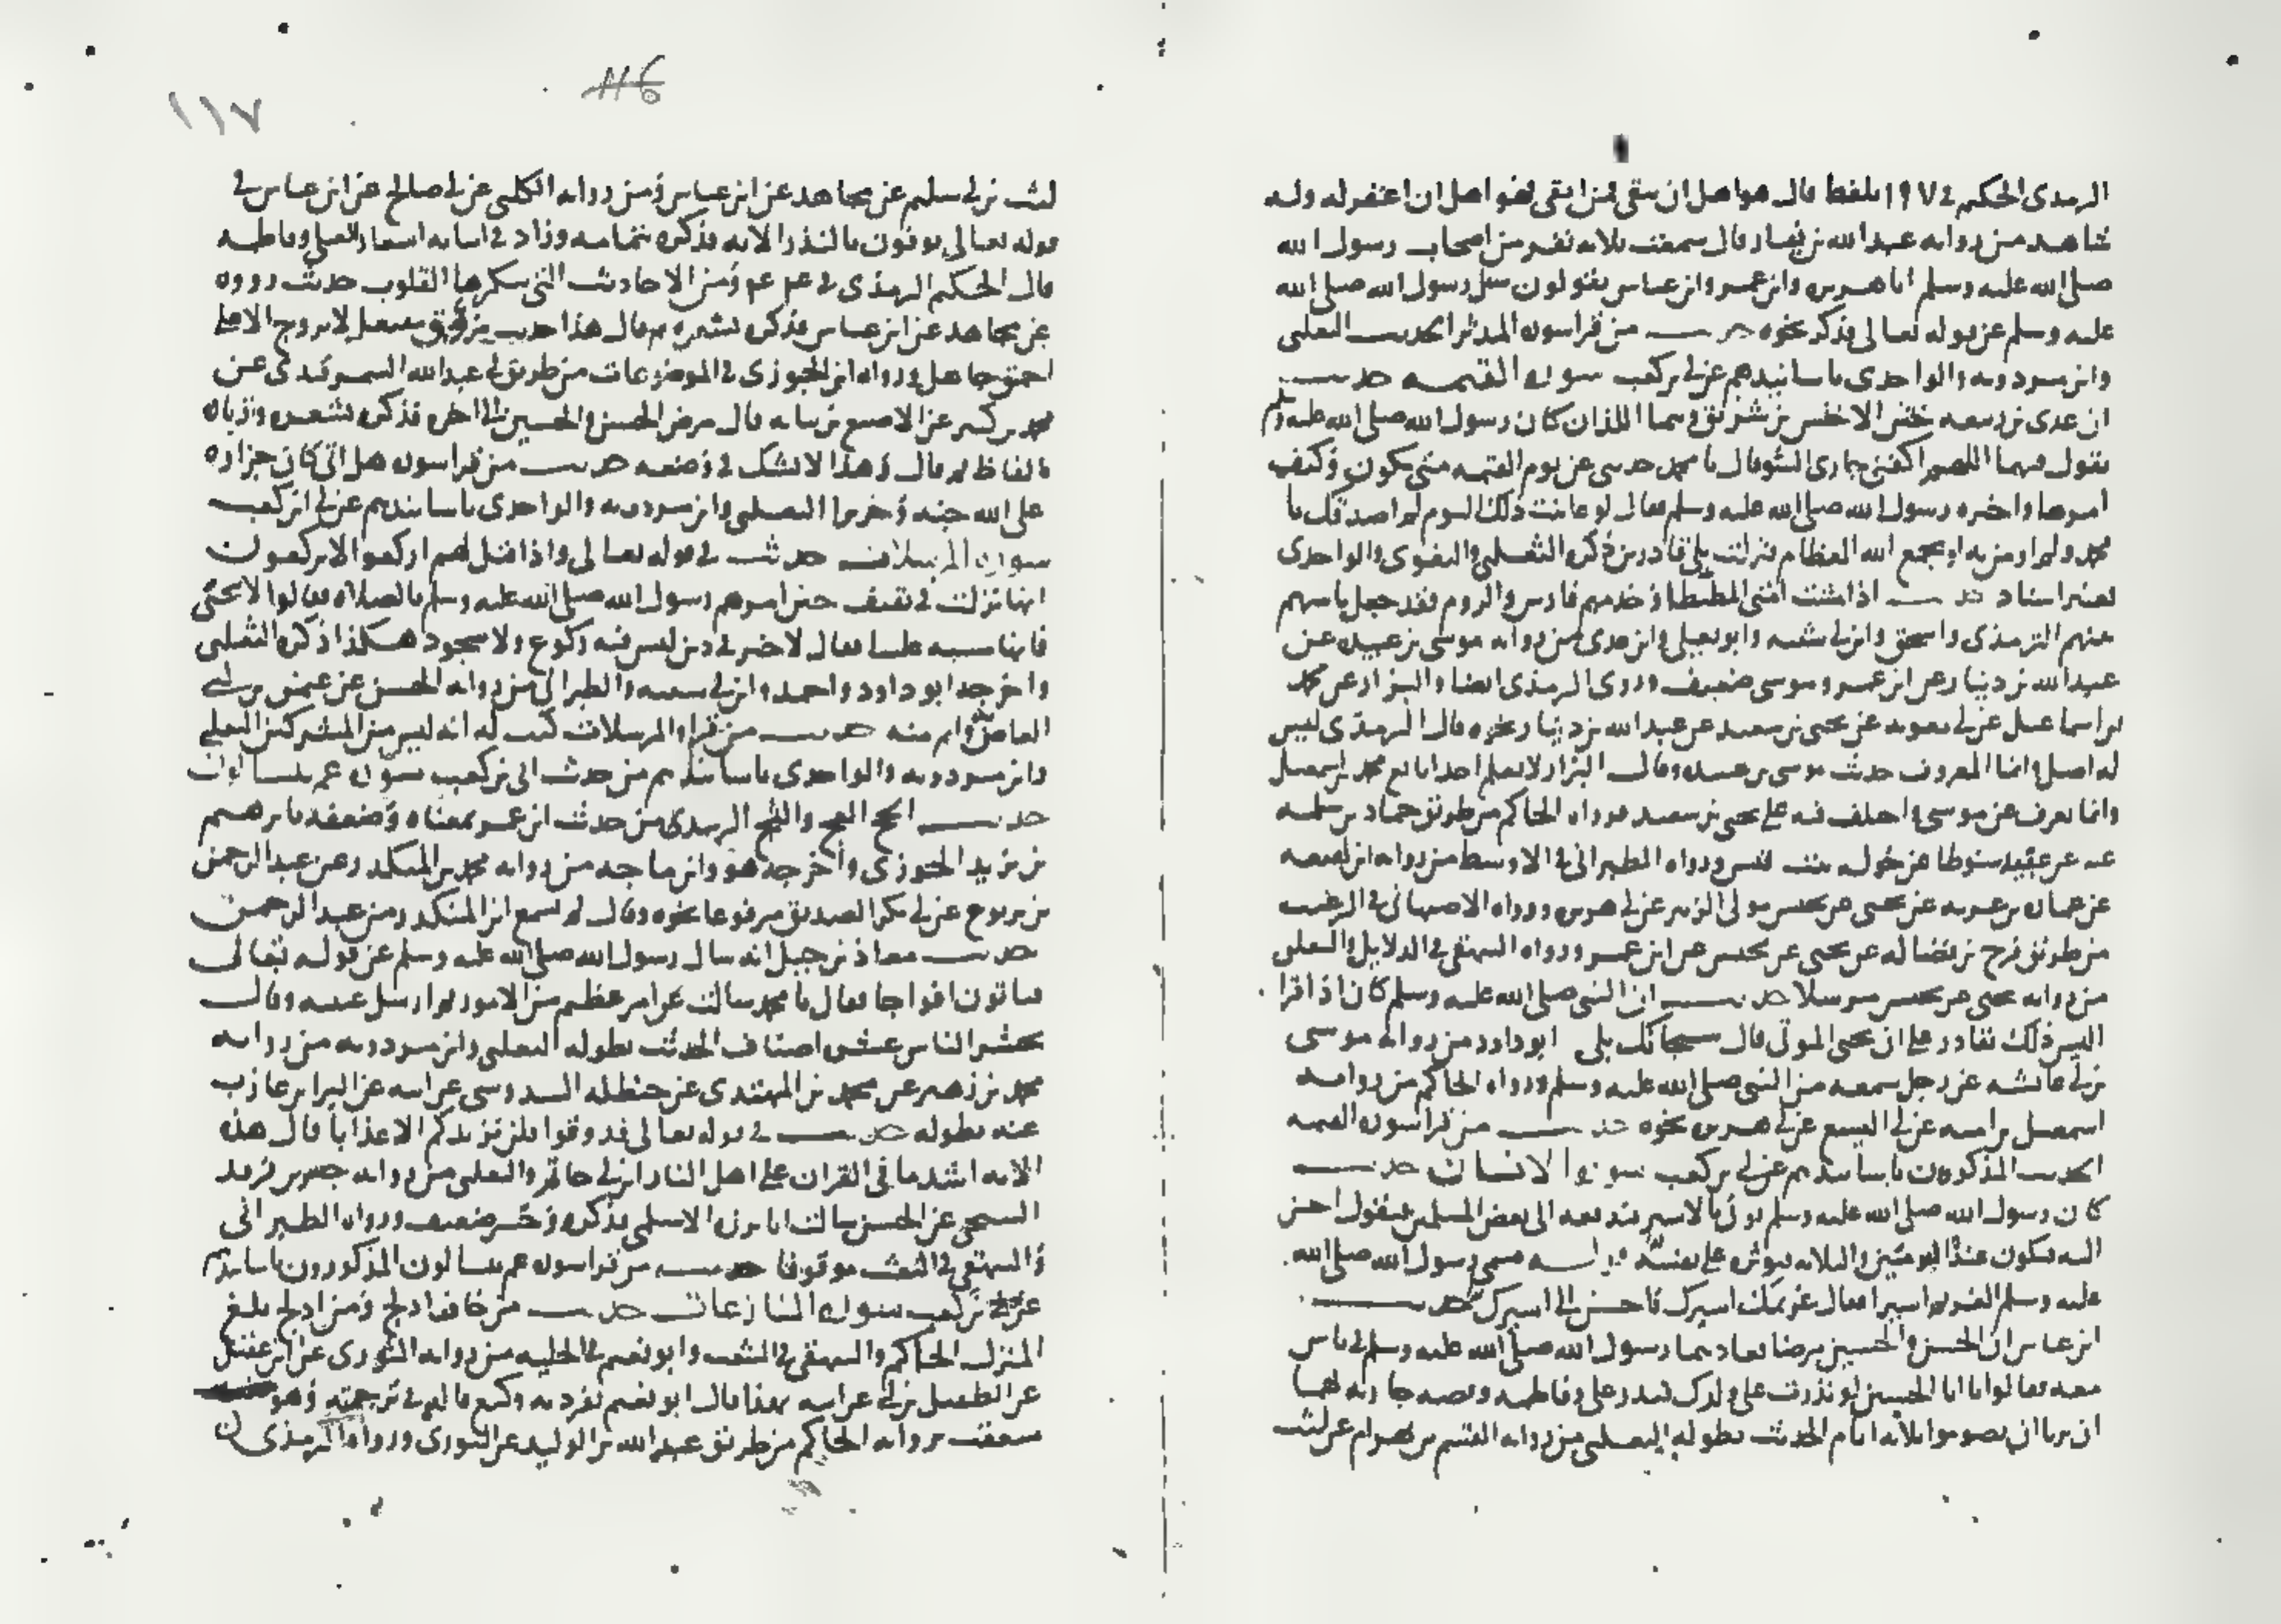 الترمذي الحكيم في ١٩٧ بلفظ قال هو اهل ان يتقى فمن اتقى فهو اهل ان اغفر له وله
شاهد من رواية عبد الله بن دينار قال سمعت ثلاثة نفر من اصحاب رسول الله
صلى الله عليه وسلم ابا هريرة وابن عمر وابن عباس يقولون سئل رسول الله صلى الله
عليه وسلم عن قوله تعالى فذكر نحوه حديث من قرا سورة المدثر الحديث الثعلبي
وابن مردويه والواحدي باسانيدهم عن ابي بن كعب سورة القيمة حديث
ان عدي بن ربيعة ختن الاخنس بن شريق وهما اللذان كان رسول الله صلى الله عليه وسلم
يقول فيهما اللهم اكفني جاري السو قال يا محمد حدثني عن يوم القيمة متى يكون وكيف
امرها واخبره رسول الله صلى الله عليه وسلم فقال لو عاينت ذلك اليوم لم اصدقك يا
محمد ولم اومن به او يجمع الله العظام فنزلت بلى قادرين ذكره الثعلبي والبغوي والواحدي
بغير اسناد حديث اذا مشت امتي المطيطا وخدمهم فارس والروم فقد جعل باسهم
بينهم الترمذي واسحق وابن ابي شيبة وابو يعلى وابن عدي من رواية موسى بن عبيدة عن
عبد الله بن دينار عن ابن عمر وموسى ضعيف وروى الترمذي ايضا والبزار عن محمد
بن اسماعيل عن ابي معوية عن يحيى بن سعيد عن عبد الله بن دينار نحوه قال الترمذي ليس
له اصل وانما المعروف حديث موسى بن عبيدة وقال البزار لا نعلم احدا تابع محمد بن اسمعيل
وانما يعرف عن موسى واختلف فيه على يحيى بن سعيد فرواه الحاكم من طريق حماد بن سلمة
عنه عن عبيد سنوطا عن خولة بنت قيس ورواه الطبراني في الاوسط من رواية ابن لهيعة
عن عمارة بن غزية عن يحيى عن يحنس مولى الزبير عن ابي هريرة ورواه الاصبهاني في الترغيب
من طريق فرج بن فضالة عن يحيى عن يحنس عن ابن عمر ورواه البيهقي في الدلايل والثعلبي
من رواية يحيى عن يحنس مرسلا حديث ان النبي صلى الله عليه وسلم كان اذا قرا
اليس ذلك بقادر على ان يحيى الموتى قال سبحانك بلى ابو داود من رواية موسى
بن ابي عائشة عن رجل سمعه من النبي صلى الله عليه وسلم ورواه الحاكم من رواية
اسمعيل بن امية عن ابي اليسع عن ابي هريرة نحوه حديث من قرا سورة القيمة
الحديث المذكورون باسانيدهم عن ابي بن كعب سورة الانسان حديث
كان رسول الله صلى الله عليه وسلم يوتى بالاسير فيدفعه الى بعض المسلمين فيقول احسن
اليه فيكون عنده اليومين والثلاثة فيوثره على نفسه حديث سمى رسول الله صلى الله
عليه وسلم الغريم اسيرا فقال غريمك اسيرك فاحسن الى اسيرك حديث
ابن عباس ان الحسن والحسين مرضا فعادهما رسول الله صلى الله عليه وسلم في ناس
معه فقالوا يا ابا الحسن لو نذرت على ولدك فنذر علي وفاطمة وفضة جارية لهما
ان برءا ان يصوموا ثلاثة ايام الحديث بطوله الثعلبي من رواية القسم بن بهرام عن ليث
116
١١٧
ليث بن ابي سليم عن مجاهد عن ابن عباس ومن رواية الكلبي عن ابي صالح عن ابن عباس في
قوله تعالى يوفون بالنذر الاية فذكره بتمامه وزاد في اثنائه اشعار العلي وفاطمة
قال الحكيم الترمذي في ومن الاحاديث التي تنكرها القلوب حديث رووه
عن مجاهد عن ابن عباس فذكره بشعره ثم قال هذا حديث مزوق مفتعل لا يروج الا على
احمق جاهل ورواه ابن الجوزي في الموضوعات من طريق ابي عبد الله السمرقندي عن
محمد بن كثير عن الاصبغ بن نباتة قال مرض الحسن والحسين الى اخره فذكره بشعره وزيادة
الفاظ ثم قال وهذا لا نشك في وضعه حديث من قرا سورة هل اتى كان جزاوه
على الله جنة وحريرا الثعلبي وابن مردويه والواحدي باسانيدهم عن ابي بن كعب
سورة المرسلات حديث في قوله تعالى واذا قيل لهم اركعوا لا يركعون
انها نزلت في ثقيف حين امرهم رسول الله صلى الله عليه وسلم بالصلاة فقالوا لا نجبي
فانها مسبة علينا فقال لا خير في دين ليس فيه ركوع ولا سجود هكذا ذكره الثعلبي
واخرجه ابو داود واحمد وابن ابي شيبة والطبراني من رواية الحسن عن عثمن بن ابي
العاص واتم منه حديث من قرا والمرسلات كتب له انه ليس من المشركين الثعلبي
وابن مردويه والواحدي باسانيدهم من حديث ابي بن كعب سورة عم يتسالون
حديث الحج العج والثج الترمذي من حديث ابن عمر بمعناه وضعفه بابرهيم
بن يزيد الخوزي واخرجه هو وابن ماجه من رواية محمد بن المنكدر عن عبد الرحمن
بن يربوع عن ابي بكر الصديق مرفوعا نحوه وقال لم يسمع ابن المنكدر من عبد الرحمن
حديث معاذ بن جبل انه سال رسول الله صلى الله عليه وسلم عن قوله تعالى
فتاتون افواجا فقال يا محمد سالت عن امر عظيم من الامور ثم ارسل عينيه وقال
يحشر الناس عشرة اصناف الحديث بطوله الثعلبي وابن مردويه من رواية
محمد بن زهير عن محمد بن المهتدي عن حنظلة السدوسي عن ابيه عن البراء بن عازب
عنه بطوله حديث في قوله تعالى فذوقوا فلن نزيدكم الا عذابا قال هذه
الاية اشد ما في القران على اهل النار ابن ابي حاتم والثعلبي من رواية جسر بن فرقد
السبخي عن الحسن سالت ابا برزة الاسلمي فذكره وجسر ضعيف ورواه الطبراني
والبيهقي في البعث موقوفا حديث من قرا سورة عم يتسالون المذكورون باسانيدهم
عن ابي بن كعب سورة النازعات حديث من خاف ادلج ومن ادلج بلغ
المنزل الحاكم والبيهقي في الشعب وابو نعيم في الحلية من رواية الثوري عن ابن عقيل
عن الطفيل بن ابي عن ابيه بهذا قال ابو نعيم تفرد به وكيع قاله في ترجمته وهو
متعقب برواية الحاكم من طريق عبد الله بن الوليد عن الثوري ورواه الترمذي